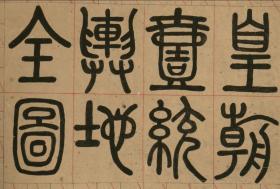 皇朝
壹統
輿地
全圖